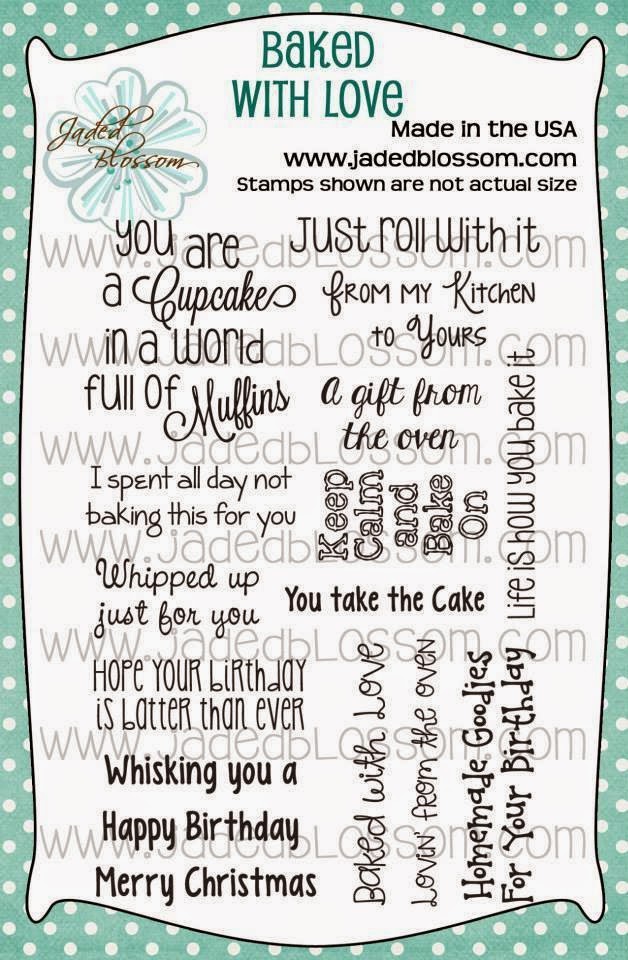 Baked
With Love
Jaded
Blossom
Made in the USA
www.jadedblossom.com
Stamps shown are not actual size
You are
a Cupcake
in a World
full of
Muffins
Just roll With it
From my Kitchen
to Yours
A gift from
the oven
I spent all day not
baking this for you
Keep
Calm
and
Bake
On
Life is how you bake it
Whipped up
just for you
You take the Cake
Hope Your Birthday
is Batter than ever
Whisking you a
Happy Birthday
Merry Christmas
Baked with Love
Lovin' from the oven
Homemade Goodies
For Your Birthday
www.jadedbLossom.com
www.jadedbLossom.com
www.jadedbLossom.com
www.jadedbLossom.com
www.jadedbLossom.com
www.jadedbLossom.com
www.jadedbLossom.com